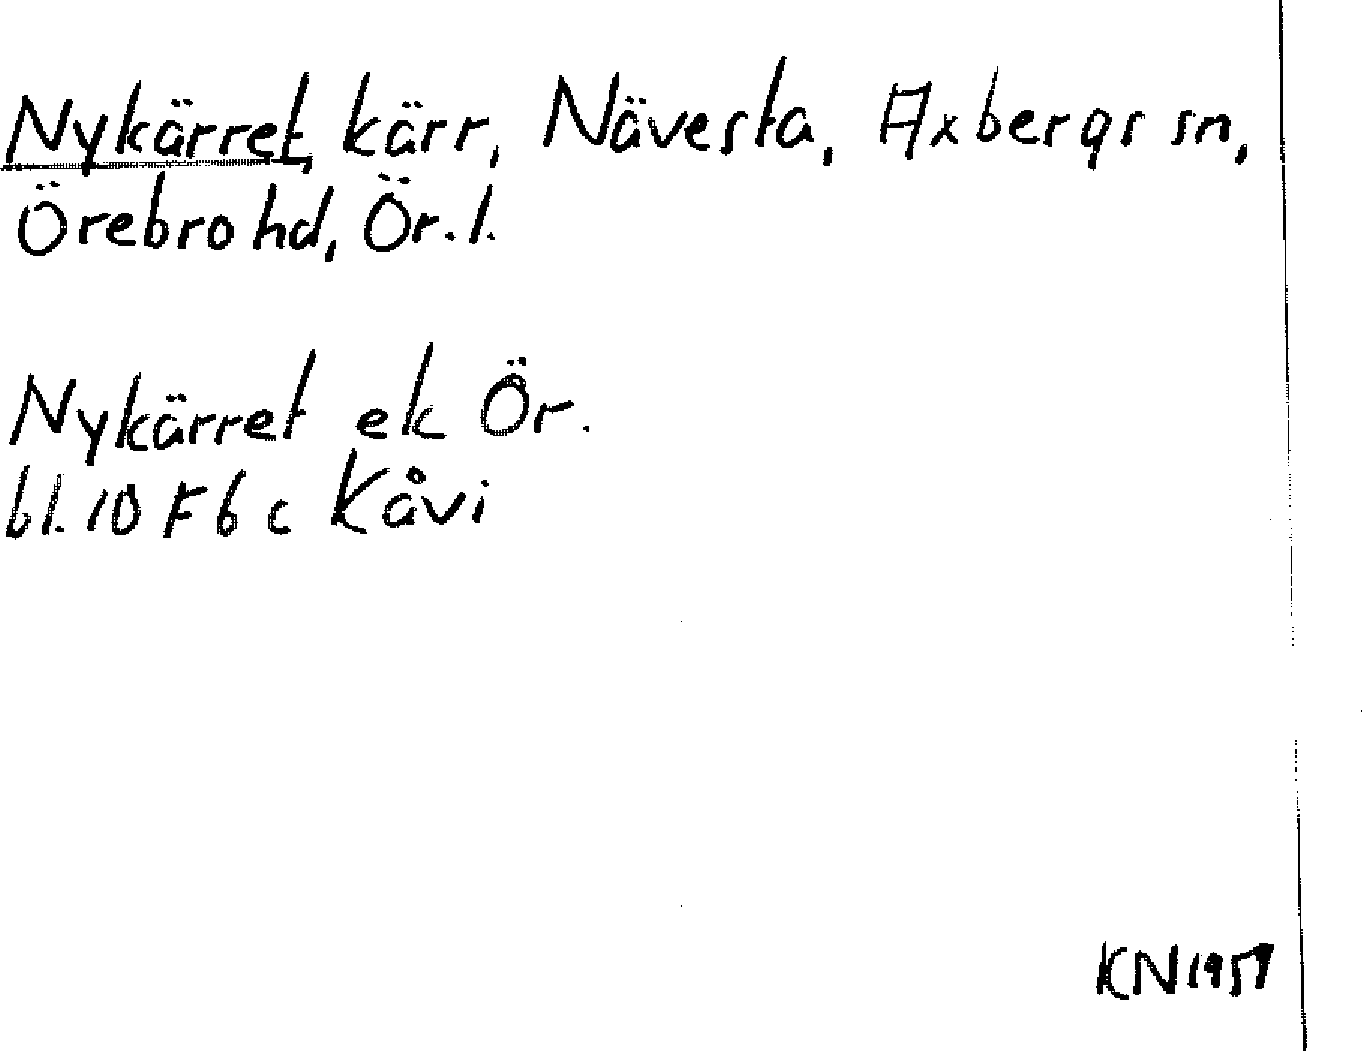 Nykärret, kärr, Nävesta, Axbergs sn,
Örebro hd, Ör. l.
Nykärret ek Ör.
bl. 10 F 6 c Kåvi
KN 1957